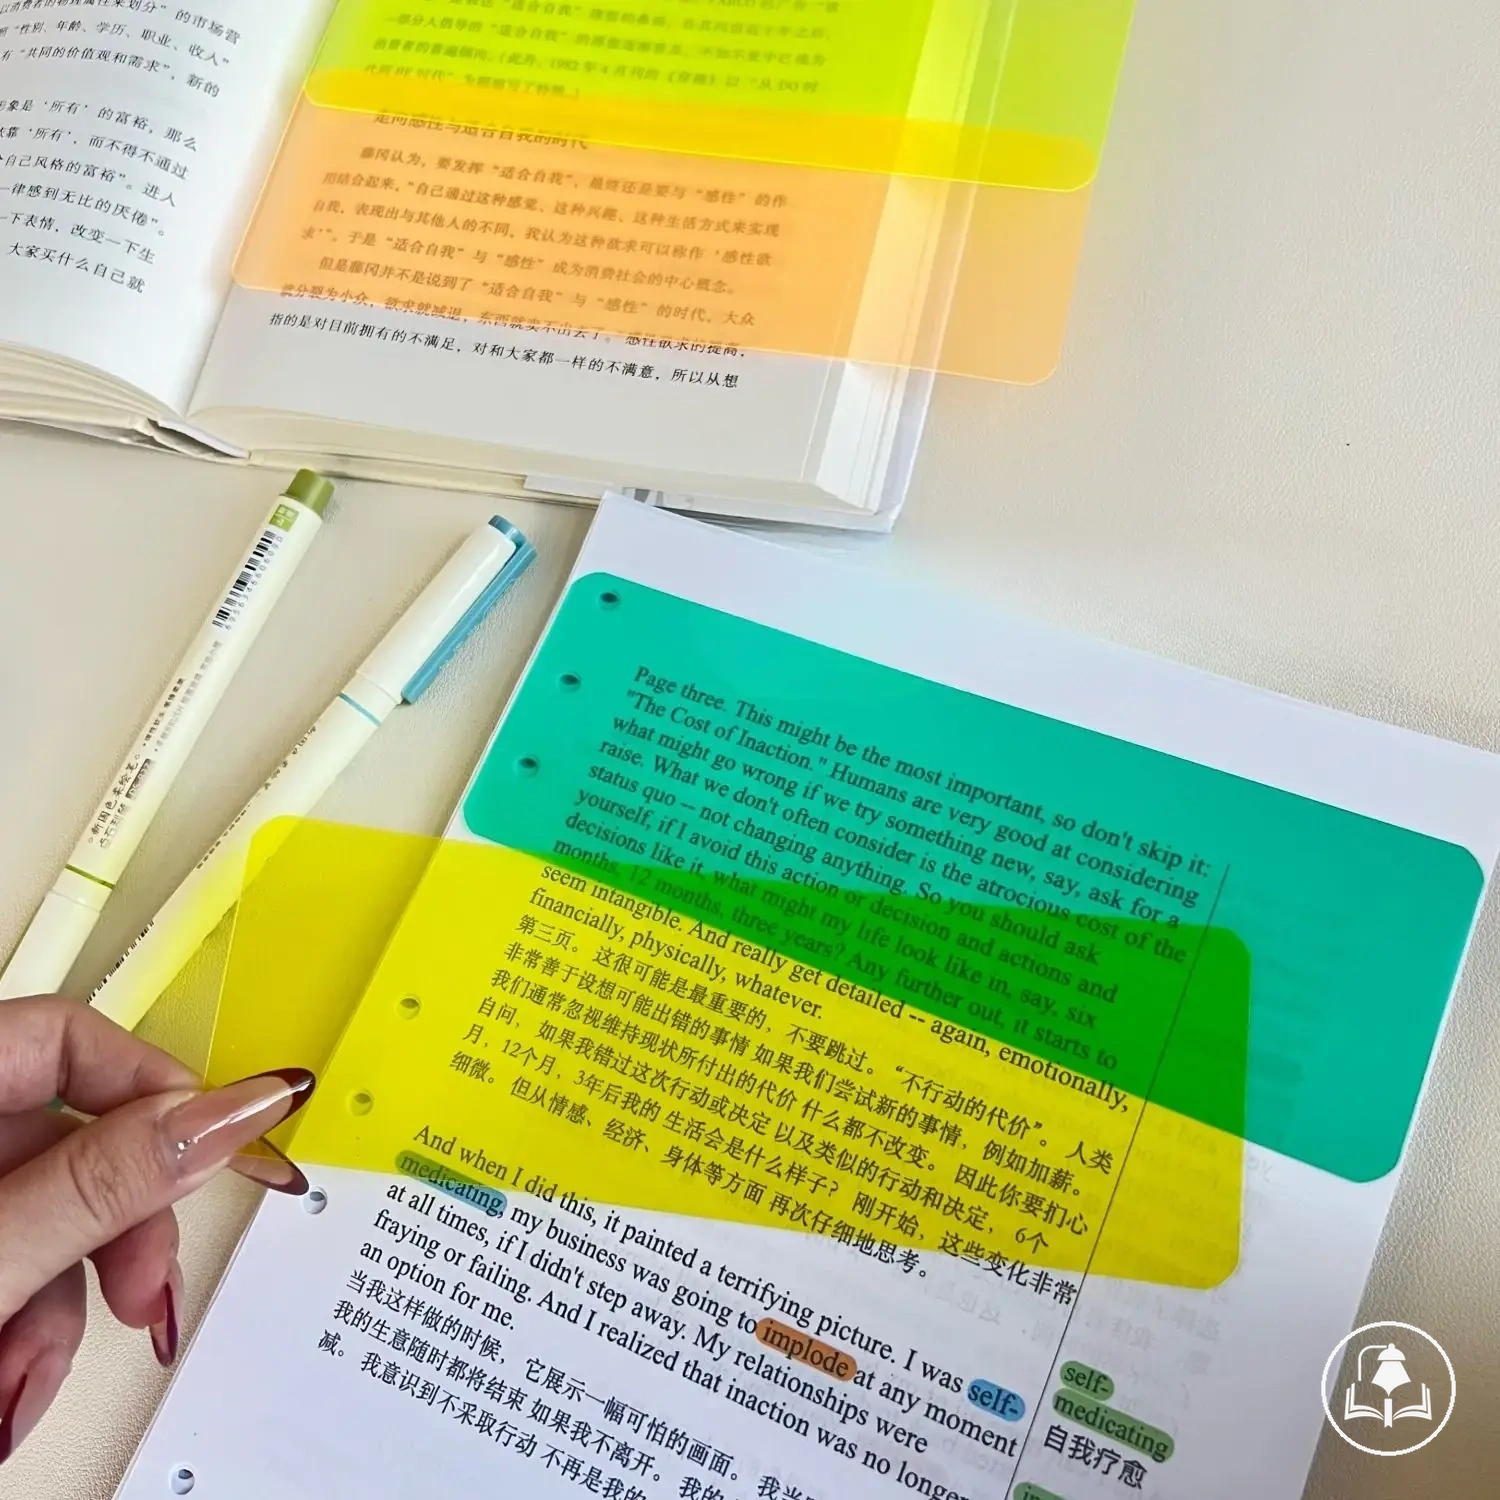 以消费者的物理属性来划分”的市场营
“性别、年龄、学历、职业、收入”
有“共同的价值观和需求”，新的
象是‘所有’的富裕，那么
靠‘所有’，而不得不通过
自己风格的富裕”。进人
一律感到无比的厌倦”。
一下表情，改变一下生
大家买什么自己就
一部分人倡导的“适合自我”的
消费者的普遍倾向。
走向感性与适合自我的时代
藤冈认为，要发挥“适合自我”，最终还是要与“感性”的作
用结合起来。“自己通过这种感觉、这种兴趣、这种生活方式来实现
自我，表现出与其他人的不同，我认为这种欲求可以称作‘感性欲
求’”。于是“适合自我”与“感性”成为消费社会的中心概念。
但是藤冈并不是说到了“适合自我”与“感性”的时代，大众
就分裂为小众，欲求就减退，东西就卖不出去了。“感性欲求的提高，
指的是对目前拥有的不满足，对和大家都一样的不满意，所以从想
6956346606090
Page three. This might be the most important, so don't skip it:
"The Cost of Inaction." Humans are very good at considering
what might go wrong if we try something new, say, ask for a
raise. What we don't often consider is the atrocious cost of the
status quo -- not changing anything. So you should ask
yourself, if I avoid this action or decision and actions and
decisions like it, what might my life look like in, say, six
months, 12 months, three years? Any further out, it starts to
seem intangible. And really get detailed -- again, emotionally,
financially, physically, whatever.
第三页。 这很可能是最重要的， 不要跳过。 “不行动的代价”。 人类
非常善于设想可能出错的事情 如果我们尝试新的事情，例如加薪。
我们通常忽视维持现状所付出的代价 什么都不改变。 因此你要扪心
自问， 如果我错过这次行动或决定 以及类似的行动和决定， 6个
月，12个月，3年后我的 生活会是什么样子？ 刚开始，这些变化非常
细微。 但从情感、经济、身体等方面 再次仔细地思考。
And when I did this, it painted a terrifying picture. I was self-
medicating, my business was going to implode at any moment
at all times, if I didn't step away. My relationships were
fraying or failing. And I realized that inaction was no longer
an option for me.
当我这样做的时候， 它展示一幅可怕的画面。
我的生意随时都将结束 如果我不离开。 我的
减。 我意识到不采取行动 不再是我的
self-
medicating
自我疗愈